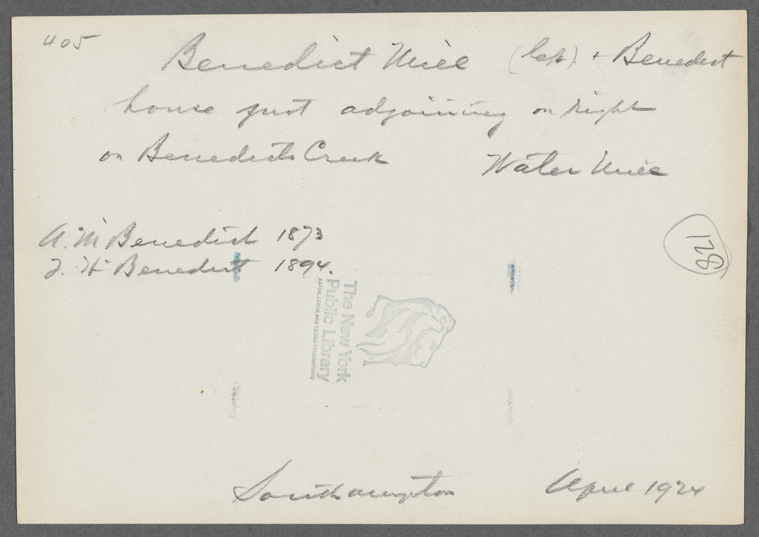 405
Benedict Mill (left) + Benedict
house just adjoining on right
on Benedicts Creek Water Mill
A. M. Benedict 1873
J. H. Benedict 1894.
821
The New York
Public Library
Southampton April 1924